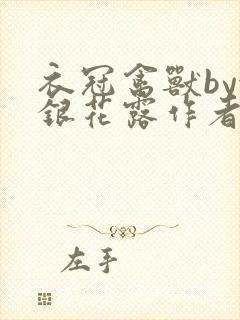 衣冠禽獸by
銀花露作者
左手